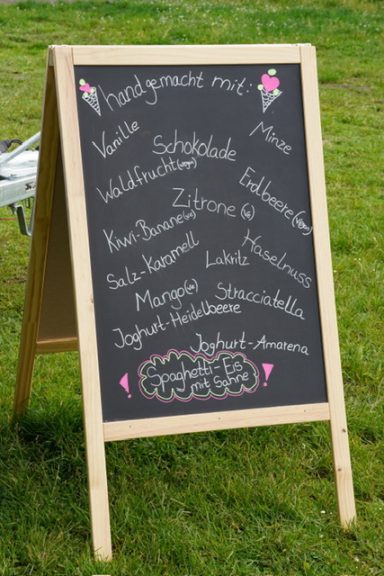 handgemacht mit:
Vanille
Schokolade
Minze
Waldfrucht (vegan)
Erdbeere (vegan)
Zitrone (ve)
Kiwi-Banane (ve)
Haselnuss
Salz-Karamell
Lakritz
Mango (ve)
Stracciatella
Joghurt-Heidelbeere
Joghurt-Amarena
! Spaghetti-Eis !
mit Sahne